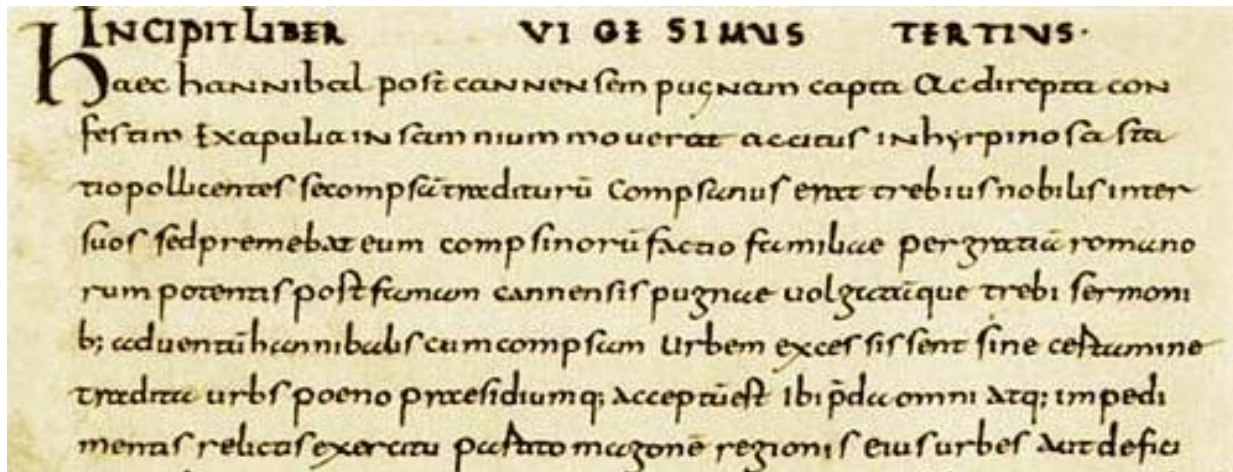 INCIPIT LIBER VIGESIMUS TERTIVS·
Haec hannibal post cannensem pugnam capta Ac direpta con
festim Ex apulia in samnium mouerat accitus in hyrpinos a sta
tio pollicentes se compsā traditurū Compsanus erat trebius nobilis inter
suos sed premebat eum compsinorū factio familiae per gratiā romano
rum potentis post famam cannensis pugnae uolgatāque trebi sermoni
b; aduentū hannibalis cum compsam Urbem excessissent sine certamine
tradita urbs poeno praesidiumq; acceptū est Ibi p̄da omni atq; impedi
mentis relictis exercitu partito magonē regionis eius urbes aut defici